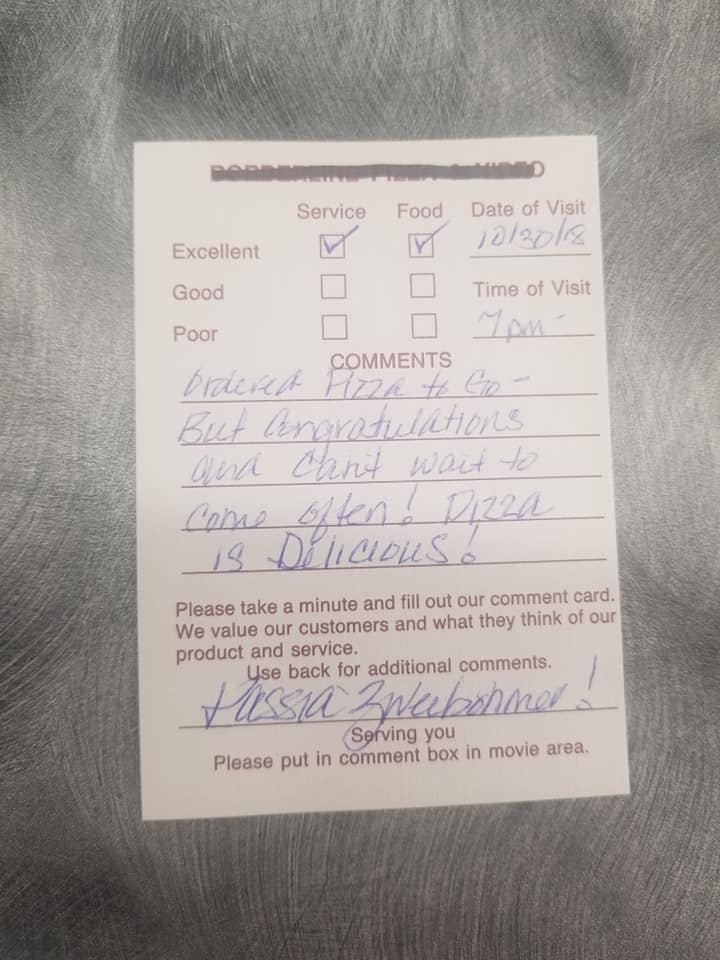 BORDERLINE PIZZA & VIDEO
Service Food Date of Visit
Excellent 10/30/18
Good Time of Visit
Poor 7pm-
COMMENTS
Ordered Pizza to Go -
But Congratulations
and Can't wait to
Come often! Pizza
is Delicious!
Please take a minute and fill out our comment card.
We value our customers and what they think of our
product and service.
Use back for additional comments.
Serving you
Please put in comment box in movie area.